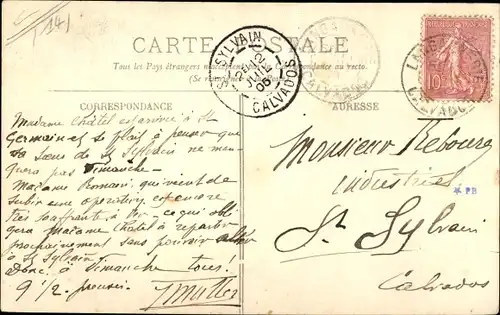 (14)
CARTE POSTALE
Tous les Pays étrangers n'acceptent pas la Correspondance au recto.
(Se renseigner à la Poste)
CORRESPONDANCE
ADRESSE
ST SYLVAIN
CALVADOS
CALVADOS
10
Madame Châtel est arrivée à St
Germain et se fait à penser que
sa Sœur de St Sylvain ne man-
quera pas Dimanche —
Madame Romani, qui vient de
subir une operation, est encore
très souffrante à Ver - ce qui obli
gera Madame Châtel à repartir
prochainement sans pouvoir aller
à St Sylvain.
Donc à Dimanche tous!
9 1/2.
J Muller
Monsieur Rebours
industriel
St Sylvain
Calvados
* PB